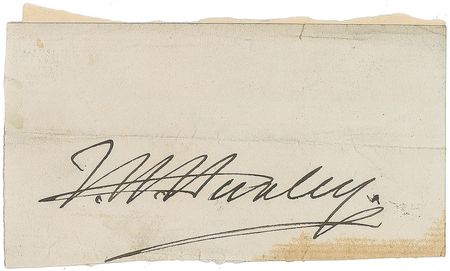 T. H. Huxley.